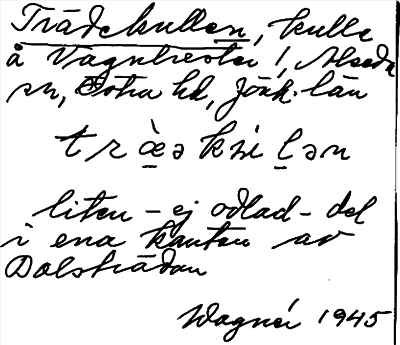 Trädekullen, kulle
å Vagnhester 1, Alseda
sn, Östra hd, Jönk. län
liten - ej odlad - del
i ena kanten av
Dalsträdan
Wagner 1945